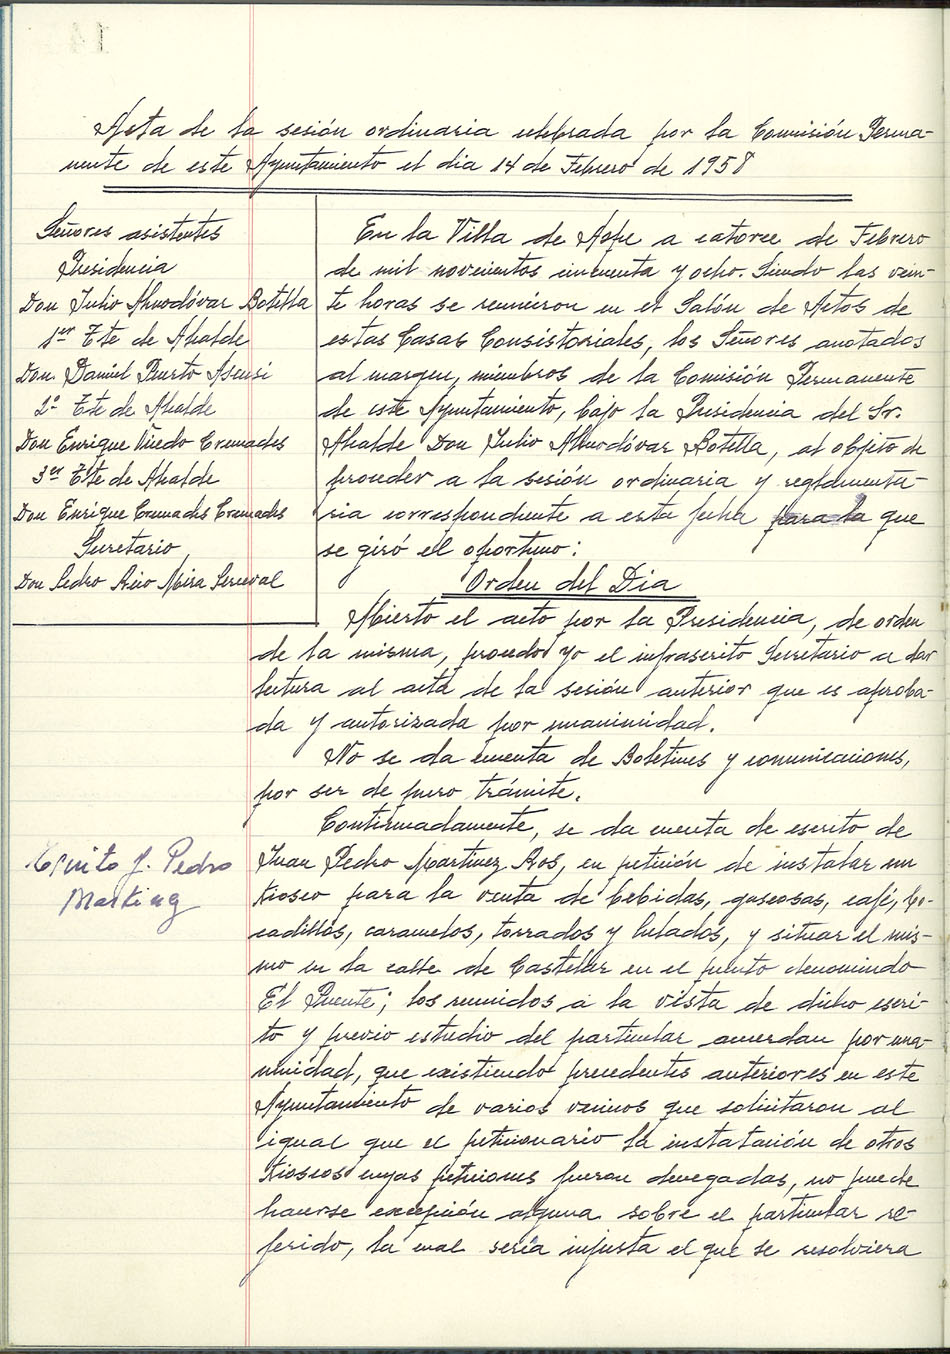 Acta de la sesión ordinaria celebrada por la Comisión Perma-
nente de este Ayuntamiento el dia 14 de Febrero de 1958
Señores asistentes
Presidencia
Don Julio Almodóvar Botella
1er Tte de Alcalde
Don Daniel Puerto Asensi
2º Tte de Alcalde
Don Enrique Cremades
3er Tte de Alcalde
Don Enrique Cremades Cremades
Secretario
Don Pedro Mira
En la Villa de Aspe a catorce de Febrero
de mil novecientos cincuenta y ocho. Siendo las vein-
te horas se reunieron en el Salón de Actos de
estas Casas Consistoriales, los Señores anotados
al margen, miembros de la Comisión Permanente
de este Ayuntamiento, bajo la Presidencia del Sr.
Alcalde Don Julio Almodóvar Botella, al objeto de
proceder a la sesión ordinaria y reglamenta-
ria correspondiente a esta fecha para la que
se giró el oportuno:
Orden del Dia
Abierto el acto por la Presidencia, de orden
de la misma, procedo yo el infrascrito Secretario a dar
lectura al acta de la sesión anterior que es aproba-
da y autorizada por unanimidad.
No se da cuenta de Boletines y comunicaciones,
por ser de puro trámite.
Continuadamente, se da cuenta de escrito de
Juan Pedro Martinez Ros, en petición de instalar un
kiosco para la venta de bebidas, gaseosas, café, bo-
cadillos, caramelos, torrados y helados, y situar el mis-
mo en la calle de Castelar en el punto denomindo
El Puente; los reunidos a la vista de dicho escri-
to y previo estudio del particular acuerdan por una-
unidad, que existiendo precedentes anteriores en este
Ayuntamiento de varios vecinos que solicitaron al
igual que el peticionario la instalación de otros
kioscos cuyas peticiones fueron denegadas, no puede
hacerse excepción alguna sobre el particular re-
ferido, la cual seria injusta el que se resolviera
Escrito J. Pedro
Martinez